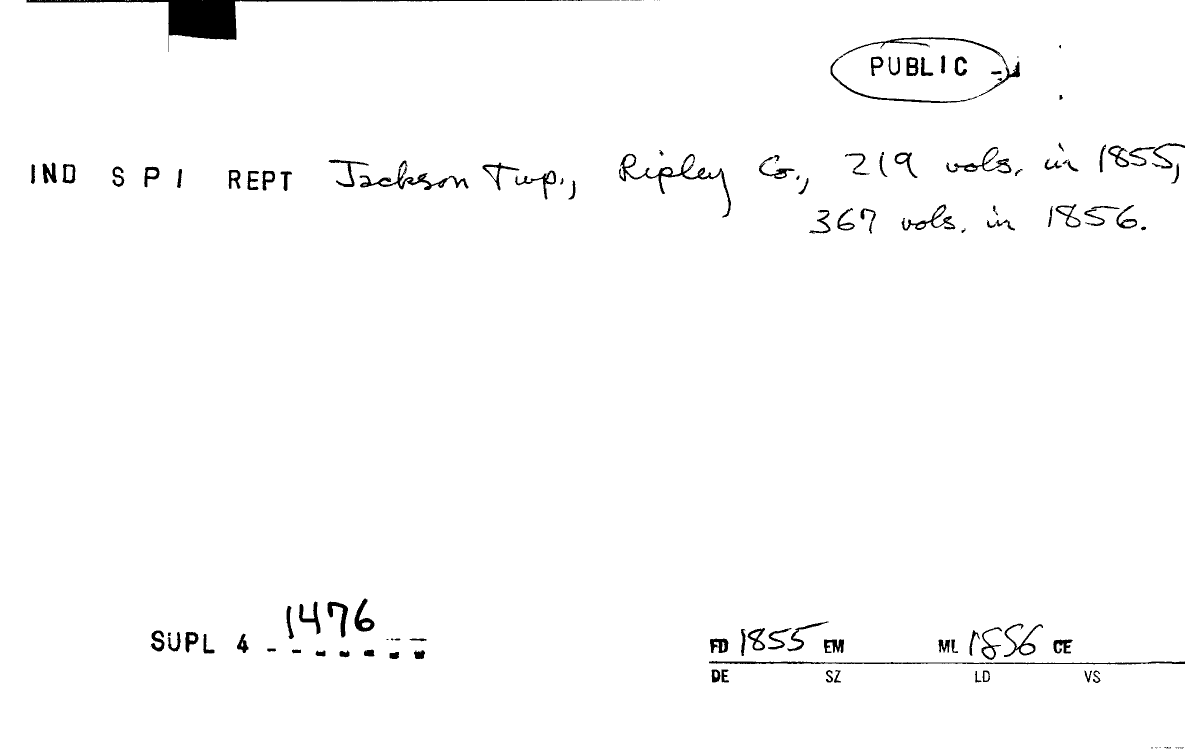 PUBLIC
IND S P I REPT Jackson Twp., Ripley Co., 219 vols. in 1855,
367 vols. in 1856.
SUPL 4 1476
FD 1855 EM ML 1856 CE
DE SZ LD VS